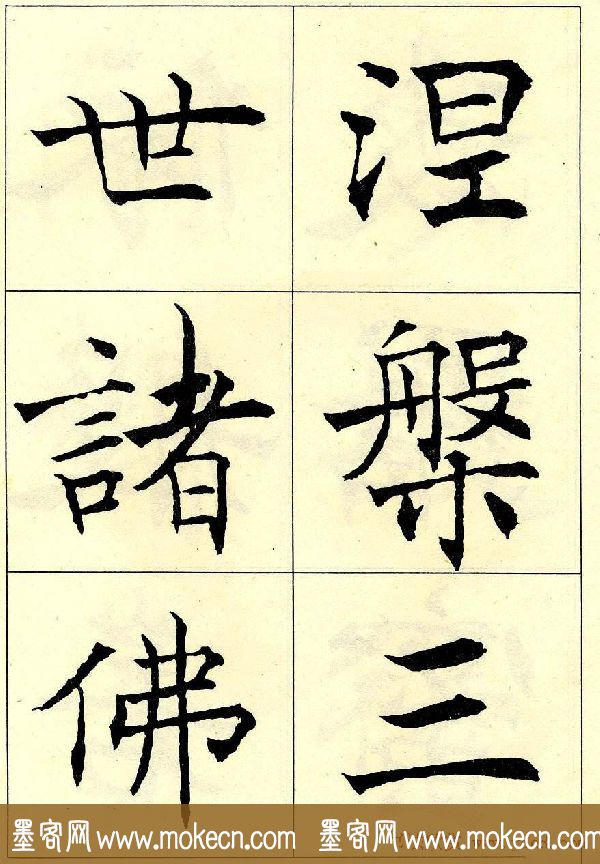 涅槃三
世諸佛
墨客网 www.mokecn.com 墨客网 www.mokecn.com